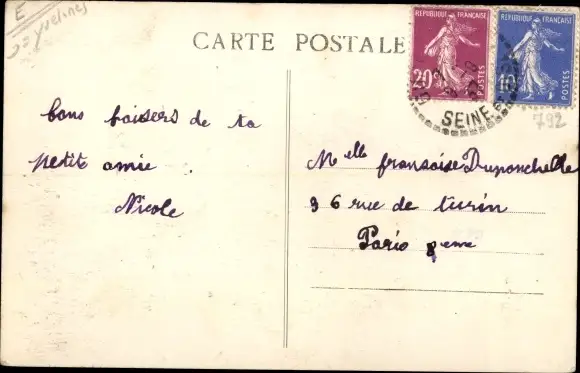 E
Yvelines
CARTE POSTALE
REPUBLIQUE FRANÇAISE
20c
POSTES
REPUBLIQUE FRANÇAISE
10c
POSTES
SEINE
792
bons baisers de ta
petite amie
Nicole
Melle fransoise Duponchelle
36 rue de turin
Paris 8eme